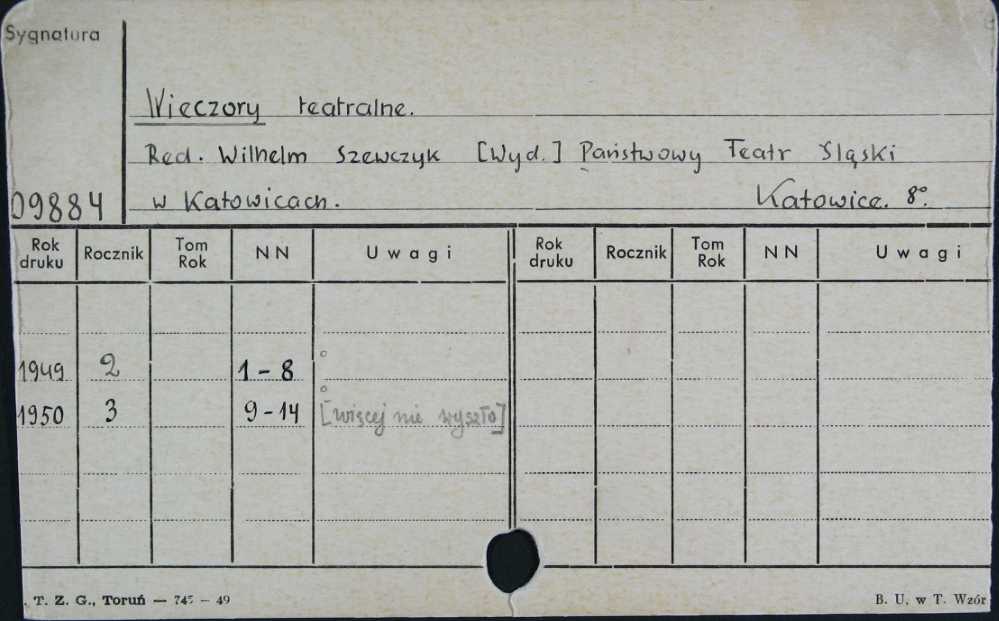 Sygnatura
Wieczory teatralne.
Red. Wilhelm Szewczyk [Wyd.] Państwowy Teatr Śląski
09884 w Katowicach. Katowice. 8°.
Rok druku Rocznik Tom Rok NN Uwagi Rok druku Rocznik Tom Rok NN Uwagi
1949 2 1-8 °
1950 3 9-14 ° [więcej nie wyszło]
. T. Z. G., Toruń — 745 — 49 B. U. w T. Wzór